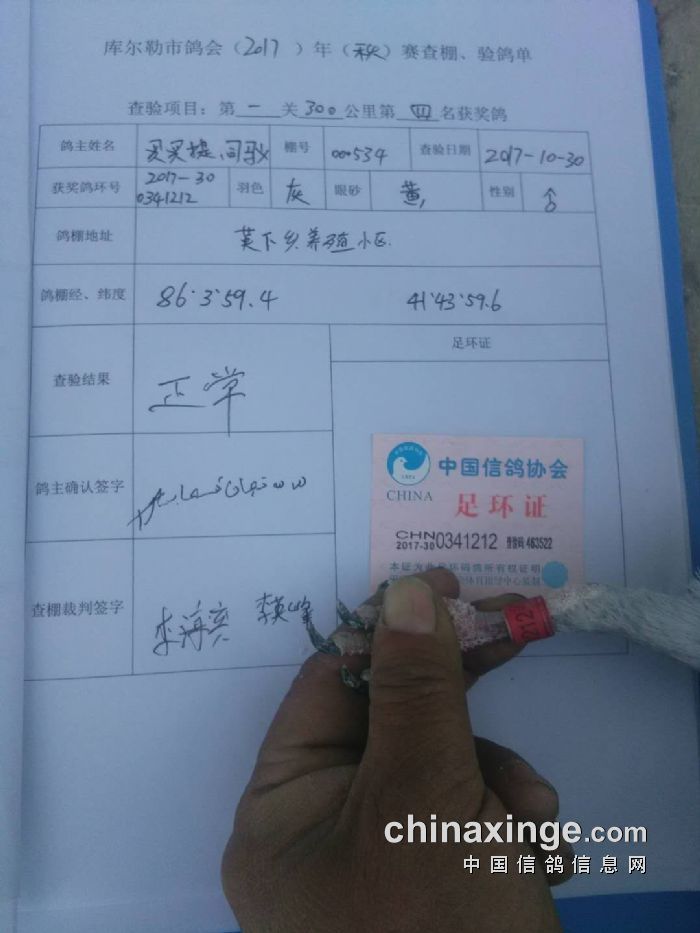 库尔勒市鸽会（2017）年（秋）赛查棚、验鸽单
查验项目：第一关300公里第四名获奖鸽
鸽主姓名 买买提、司马义 棚号 000534 查验日期 2017-10-30
获奖鸽环号 2017-30 0341212 羽色 灰 眼砂 黄 性别 ♂
鸽棚地址 英下乡养殖小区
鸽棚经、纬度 86°3′59.4 41°43′59.6
查验结果 正常
足环证
鸽主确认签字
查棚裁判签字 李海亮 李英峰
中国信鸽协会
CHINA
足环证
CHN
2017-30 0341212 463522
本证为此足环码鸽所有权证明
212
chinaxinge.com
中国信鸽信息网